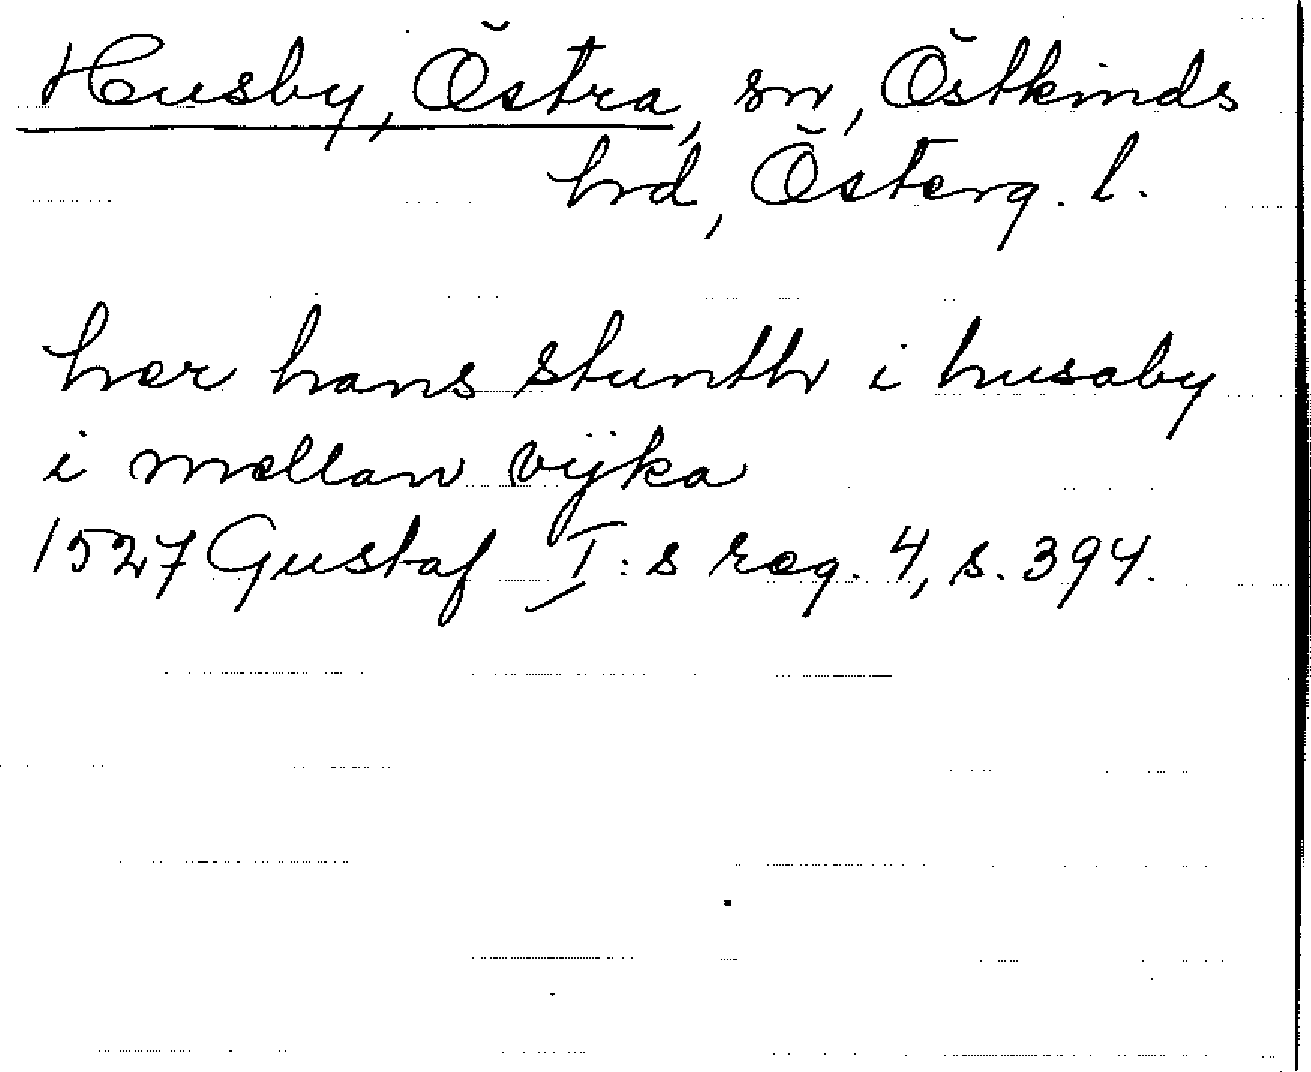 Husby, Östra, sn, Östkinds
hrd, Österg. l.
her hans stunth i husaby
i mellan vijka
1527 Gustaf I:s reg. 4, s. 394.